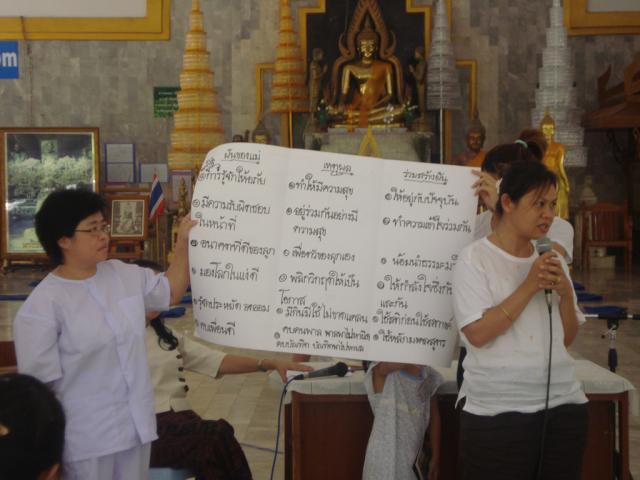 om
ฝันของแม่
เหตุผล
ร่วมสร้างฝัน
การรู้จักให้อภัย
มีความรับผิดชอบ
ในหน้าที่
อนาคตที่ดีของลูก
มองโลกในแง่ดี
รู้จักประหยัด อดออม
คบเพื่อนดี
ทำให้มีความสุข
อยู่ร่วมกันอย่างมี
ความสุข
เพื่อตัวของลูกเอง
พลิกวิกฤติให้เป็น
โอกาส
มีกินมีใช้ไม่ขาดแคลน
คบคนพาล พาลพาไปหาผิด
คบบัณฑิต บัณฑิตพาไปหาผล
ให้อยู่กับปัจจุบัน
ทำความเข้าใจร่วมกัน
น้อมนำธรรมะมา
ให้กำลังใจซึ่งกัน
และกัน
ใช้สติก่อนใช้สตางค์
ใช้หลักกาลามสูตร